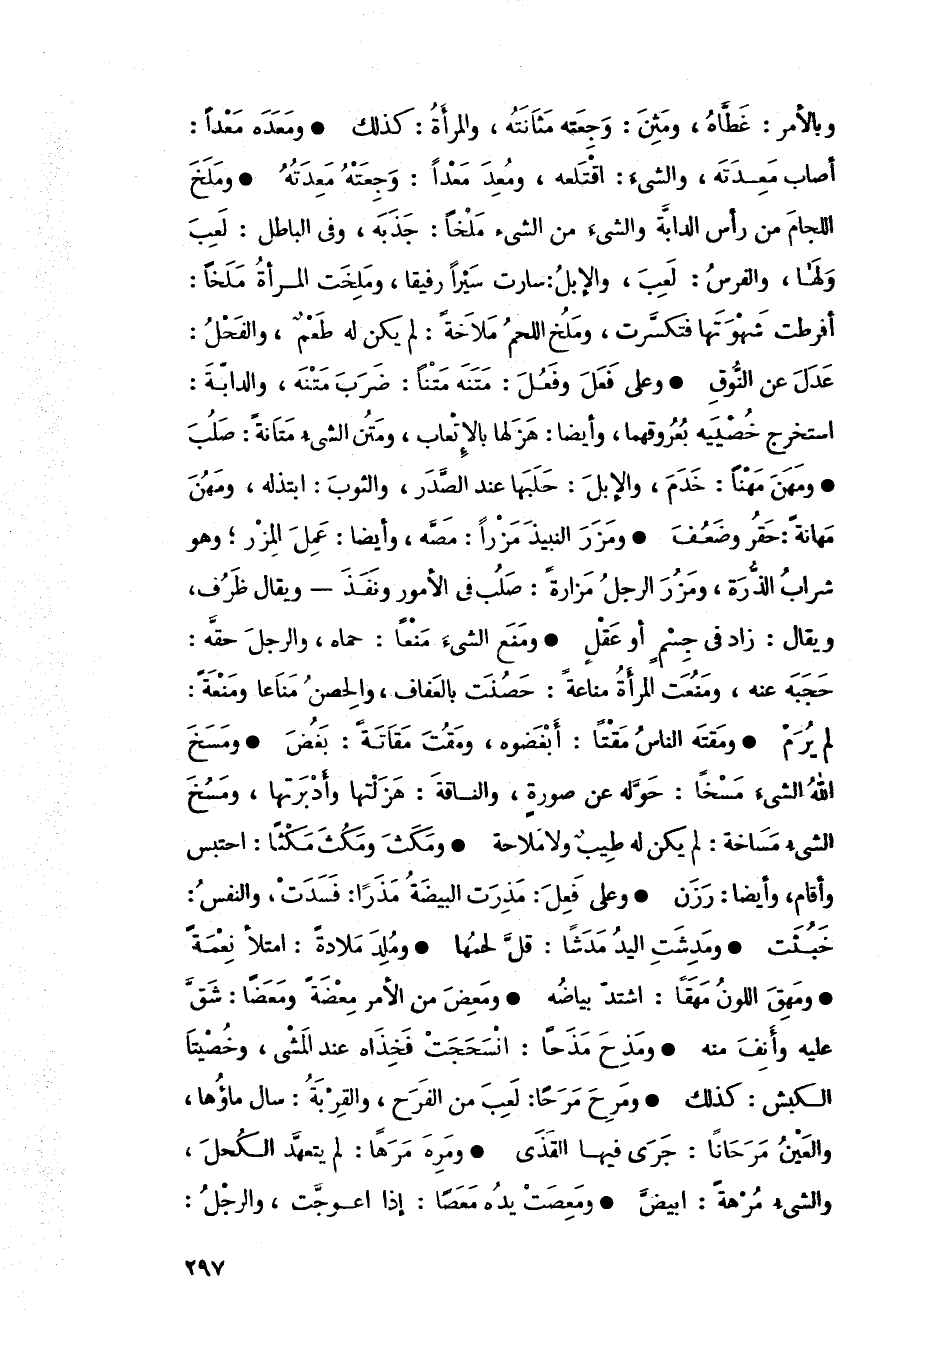 وبالأمر : غَطَّاهُ ، ومَثِنَ : وَجِعَته مَثَانَتُه ، والمرأَةُ : كذلك ● ومَعَدَه مَعْداً :
أصاب مَعِـدَتَه ، والشىءَ : اقْتَلَعه ، ومُعِدَ مَعْداً : وَجِعَتْهُ مَعِدَتُهُ ● ومَلَخَ
اللجامَ من رأس الدابَّة والشىءَ من الشىء مَلْخاً : جَذَبَه ، وفى الباطل : لَعِبَ
وَلَهَا ، والفرسُ : لَعِبَ ، والإبلُ : سارت سَيْراً رفيقا ، ومَلِخَت المـرأةُ مَلَخاً :
أفرطت شَهْوَتُها فتكسَّرت ، ومَلُخ اللحمُ مَلاَخةً : لم يكن له طَعْمٌ ، والفَحْلُ :
عَدَلَ عن النُّوقِ ● وعلى فَعَلَ وفَعُـلَ : مَتَنَه مَتْناً : ضَرَبَ مَتْنَه ، والدابّـةَ :
استخرج خُصْيَيه بُعُروقهما ، وأيضا : هَزَلها بالإتْعاب ، ومَتُن الشىء مَتَانةً : صَلُبَ
● ومَهَنَ مَهْناً : خَدَمَ ، والإبلَ : حَلَبَها عند الصَّدَر ، والثوبَ : ابتذله ، ومَهُنَ
مَهانةً : حَقُر وضَعُـفَ ● ومَزَرَ النبيذَ مَزْراً : مَصَّه ، وأيضا : عَمِلَ المِزْر ؛ وهو
شرابُ الذُّرَة ، ومَزُرَ الرجلُ مَزارةً : صَلُب فى الأمور ونَفَـذَ — ويقال ظَرُف ،
ويقال : زاد فى جِسْمٍ أو عَقْلٍ ● ومَنَع الشىءَ مَنْعًا : حماه ، والرجلَ حقَّه :
حَجَبَه عنه ، ومَنُعَت المرأةُ مناعةً : حَصُنَت بالعَفاف ، والحِصنُ مَنَاعا ومَنْعَةً :
لم يُرَمْ ● ومَقَته الناسُ مَقْتًا : أَبْغَضوه ، ومَقُتَ مَقَاتَـةً : بَغُضَ ● ومَسَخَ
اللهُ الشىءَ مَسْخًا : حَوَّله عن صورةٍ ، والنـاقةَ : هَزَلْتها وأَدْبَرتها ، ومَسُخَ
الشىء مَسَاخة : لم يكن له طِيبٌ ولا مَلاحة ● ومَكَثَ ومَكُثَ مَكْثًا : احتبس
وأقام ، وأيضا : رَزَن ● وعلى فَعِلَ : مَذِرَت البيضَةُ مَذَرًا : فَسَدَتْ ، والنفسُ :
خَبُـثَت ● ومَدِشَتِ اليدُ مَدَشًا : قلَّ لحمُها ● ومُلِدَ مَلادةً : امتلأ نِعْمَـةً
● ومَهِقَ اللونُ مَهَقًا : اشتدّ بياضُه ● ومَعِضَ من الأمر مِعْضَةً ومَعَضًا : شَقَّ
عليه وأَنِفَ منه ● ومَذِحَ مَذَحاً : انْسَحَجَتْ فَخِذَاه عند المَشْى ، وخُصْيَتَا
الـكبش : كذلك ● ومَرِحَ مَرَحًا : لَعِبَ من الفَرَح ، والقِرْبَةُ : سال ماؤُها ،
والعَيْنُ مَرَحَانًا : جَرَى فيهـا القَذَى ● ومَرِهَ مَرَهًا : لم يتعهَّد الـكُحلَ ،
والشىء مُرْهةً : ابيضَّ ● ومَعِصَتْ يدُه مَعَصًا : إذا اعـوجَّت ، والرِجْلُ :
٢٩٧